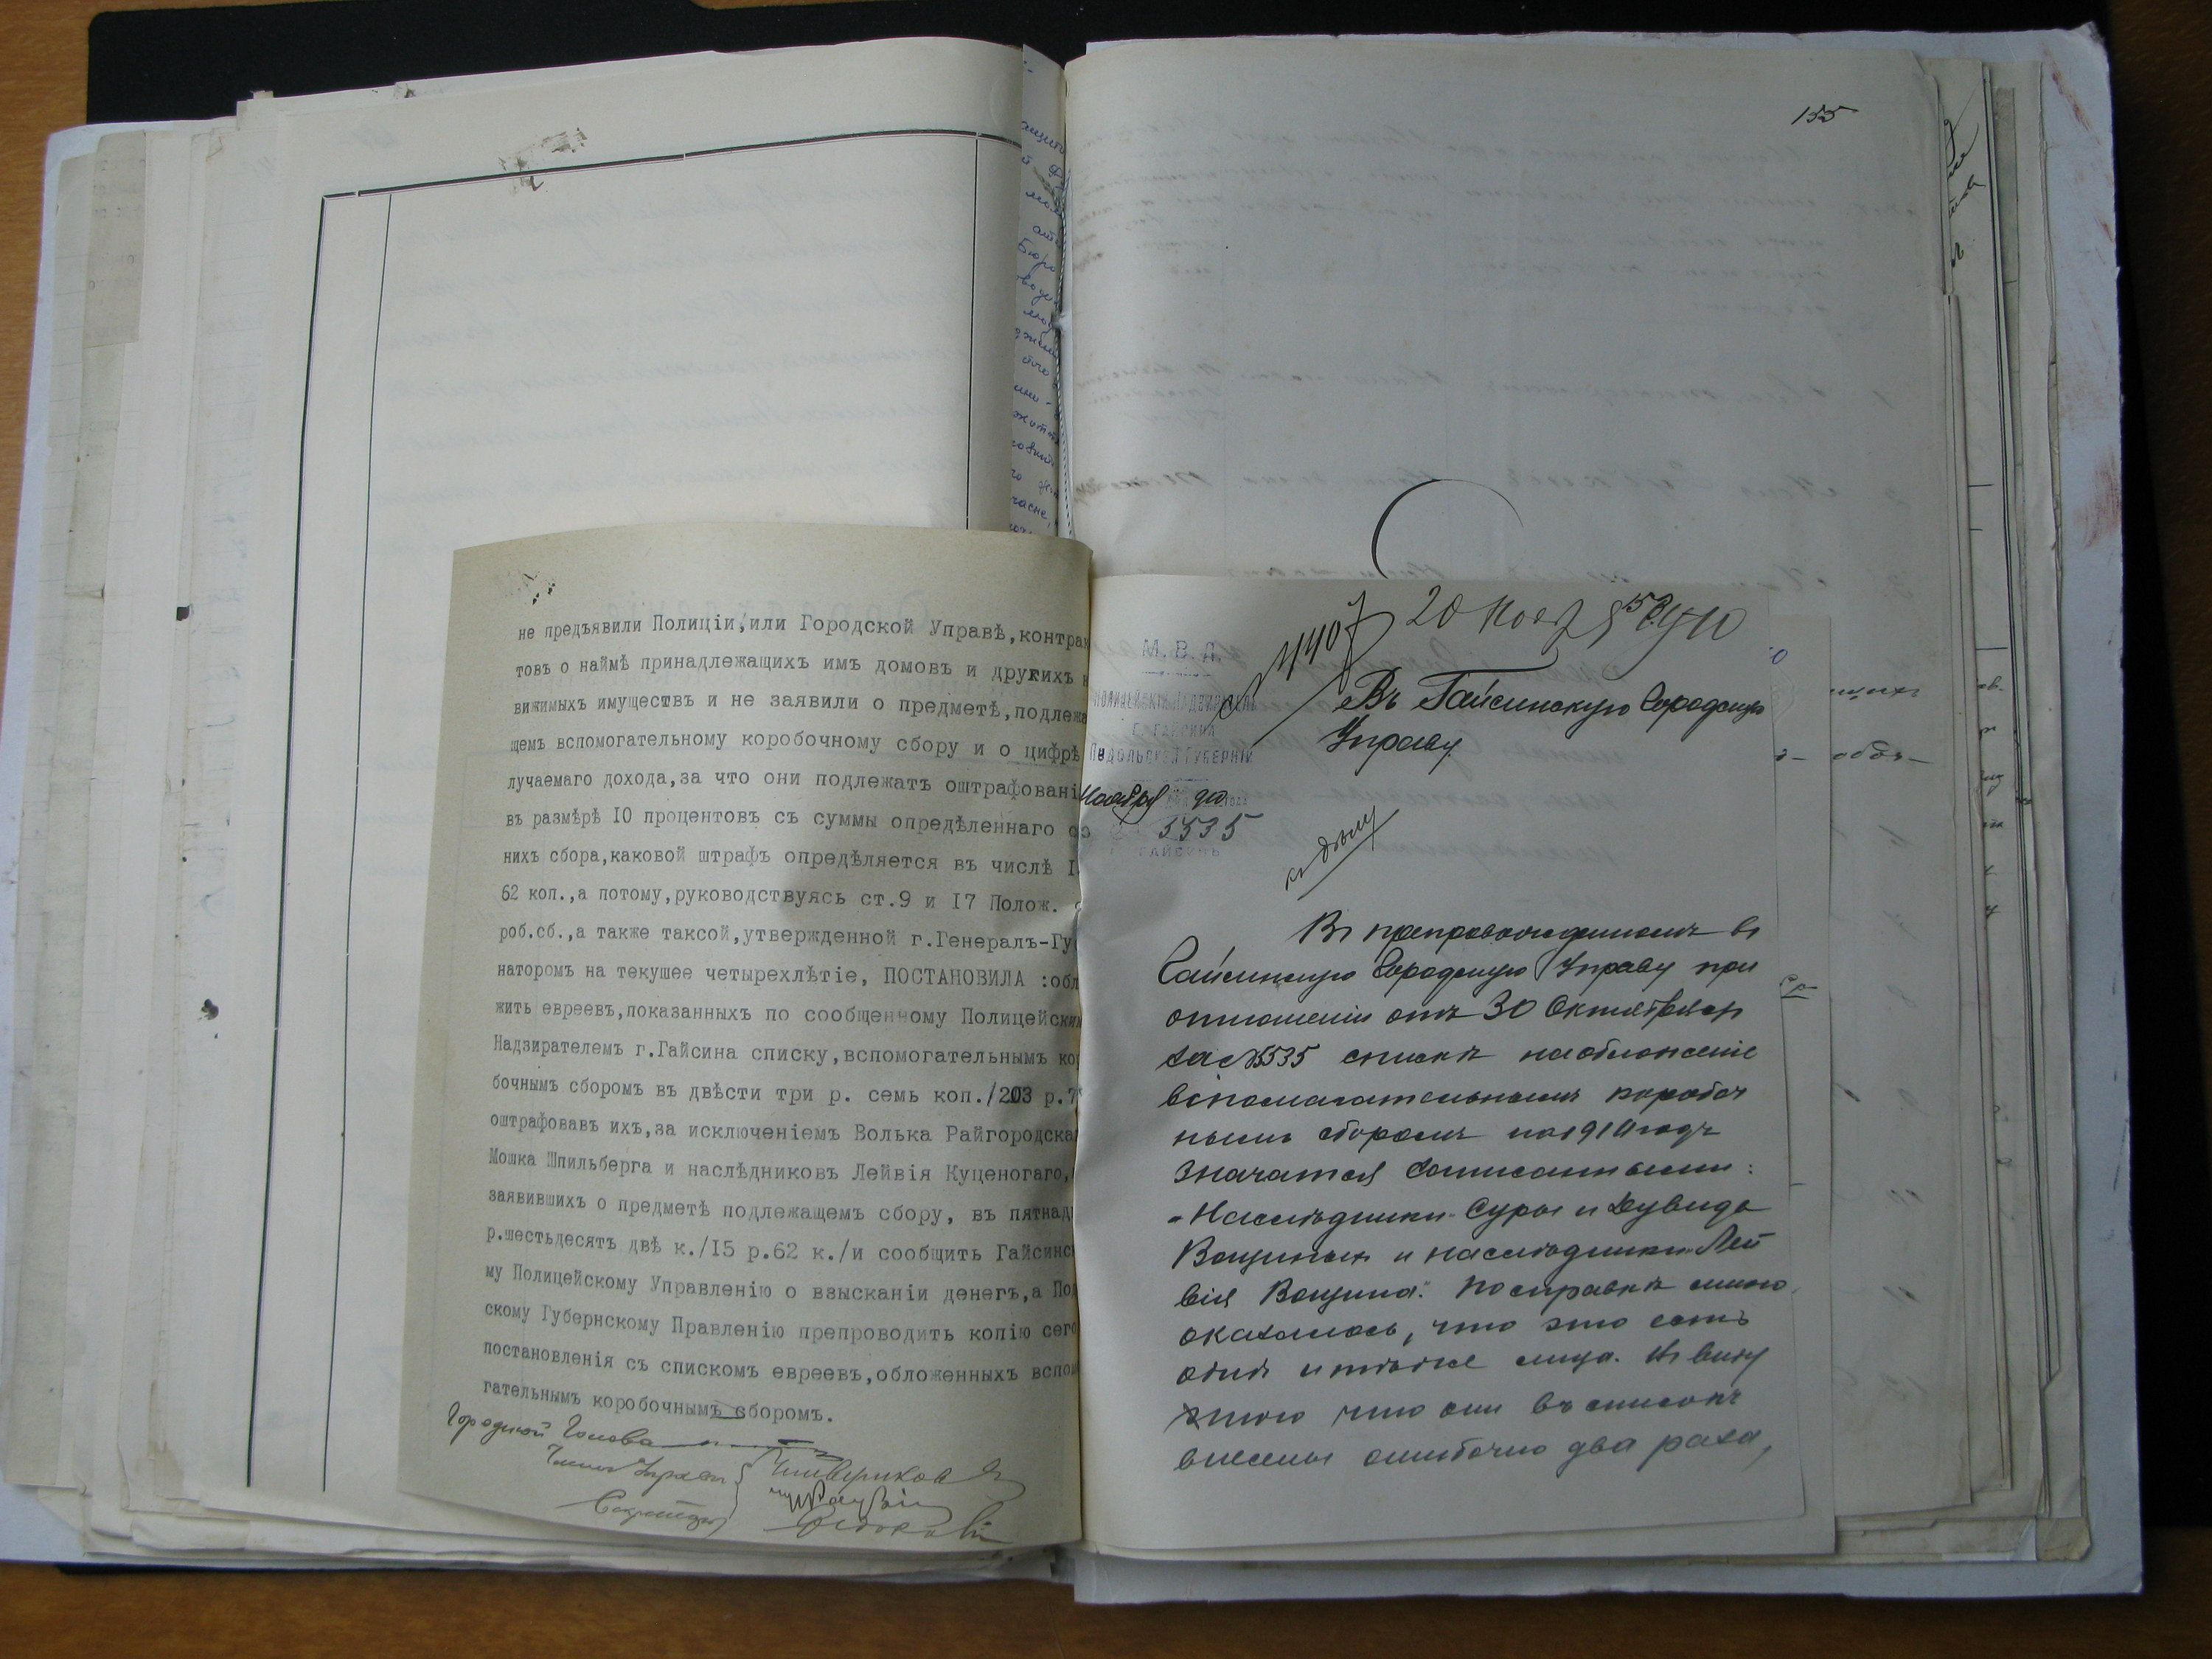 не предъявили Полиціи,или Городской Управѣ,контрак
товъ о наймѣ принадлежащихъ имъ домовъ и другихъ н
вижимыхъ имуществъ и не заявили о предметѣ,подлежа
щемъ вспомогательному коробочному сбору и о цифрѣ
лучаемаго дохода,за что они подлежатъ оштрафовані
въ размѣрѣ 10 процентовъ съ суммы опредѣленнаго
нихъ сбора,каковой штрафъ опредѣляется въ числѣ
62 коп.,а потому,руководствуясь ст.9 и 17 Полож.
роб.сб.,а также таксой,утвержденной г.Генералъ-Гу
наторомъ на текущее четырехлѣтіе, ПОСТАНОВИЛА :обл
жить евреевъ,показанныхъ по сообщенному Полицейским
Надзирателемъ г.Гайсина списку,вспомогательнымъ ко
бочнымъ сборомъ въ двѣсти три р. семь коп./203 р.7
оштрафовавъ ихъ,за исключеніемъ Волька Райгородска
Мошка Шпильберга и наслѣдниковъ Лейвія Куценогаго,
заявившихъ о предметѣ подлежащемъ сбору, въ пятнад
р.шестьдесятъ двѣ к./15 р.62 к./и сообщить Гайсинс
му Полицейскому Управленію о взысканіи денегъ,а По
скому Губернскому Правленію препроводить копію сего
постановленія съ спискомъ евреевъ,обложенныхъ вспо
гательнымъ коробочнымъ сборомъ.
Городской Голова
Члены Управы
Секретарь
155
20 Нояб
4407
М. В. Д.
ПОЛИЦЕЙСКІЙ НАДЗИРАТЕЛЬ
Г. ГАЙСИНА
ПОДОЛЬСКОЙ ГУБЕРНІИ
Ноября
3535
ГАЙСИНЪ
Въ Гайсинскую Городскую
Управу
къ дѣлу
Въ препровожденномъ въ
Гайсинскую Городскую Управу при
отношеніи отъ 30 Октября ср
за №3535 спискѣ на обложеніе
вспомогательнымъ коробоч
нымъ сборомъ на 1910 годъ
значатся записанными:
"Наслѣдники Суры и Дувида
Вощиныхъ и наслѣдники Лей
вія Вощина". По справкѣ мною
оказалось, что это есть
одни и тѣже лица. Въ виду
этого что они въ списокъ
внесены ошибочно два раза,